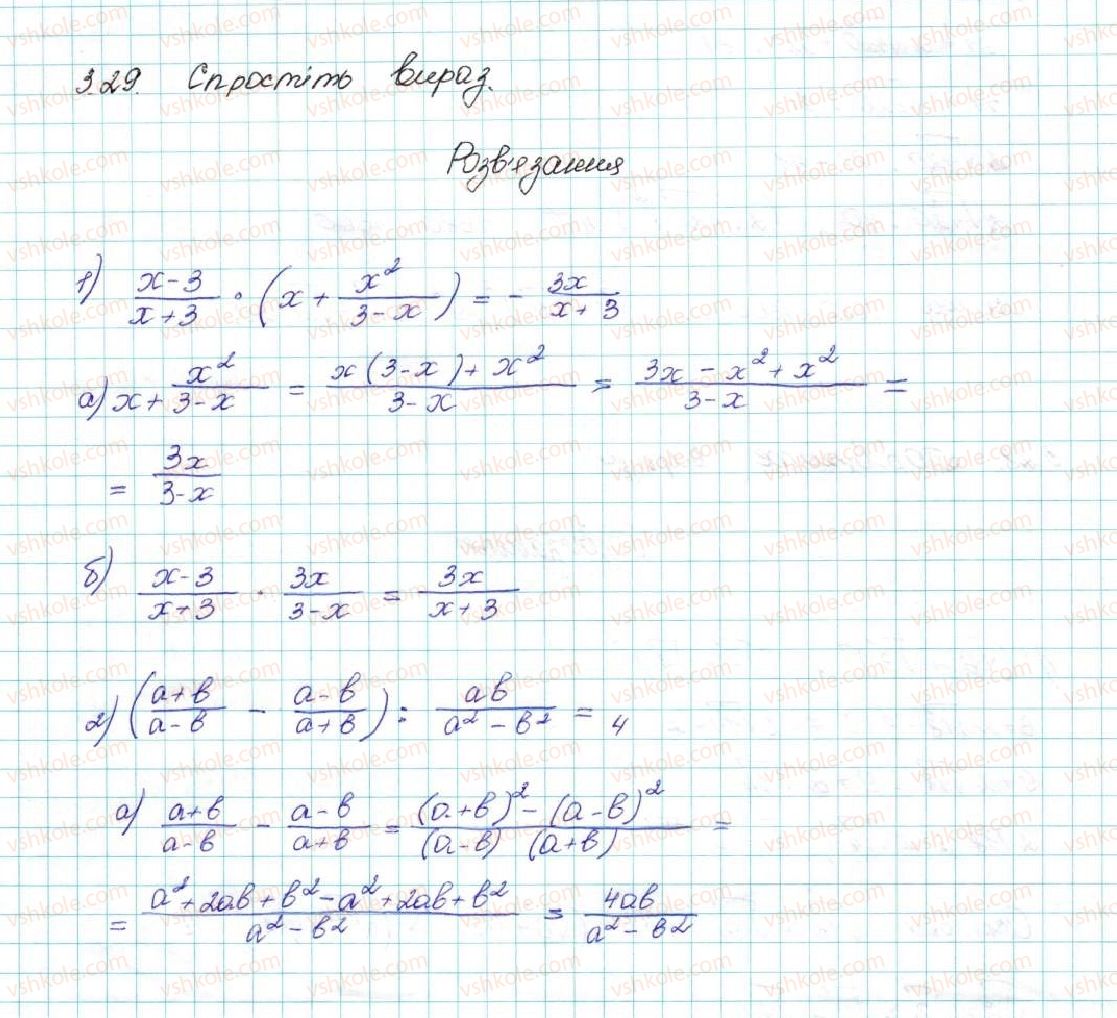 3.29. Спростіть вираз.
Розв'язання
1) \frac{x-3}{x+3} \cdot (x + \frac{x^2}{3-x}) = - \frac{3x}{x+3}
а) x + \frac{x^2}{3-x} = \frac{x(3-x)+x^2}{3-x} = \frac{3x-x^2+x^2}{3-x} =
= \frac{3x}{3-x}
б) \frac{x-3}{x+3} \cdot \frac{3x}{3-x} = \frac{3x}{x+3}
2) (\frac{a+b}{a-b} - \frac{a-b}{a+b}) : \frac{ab}{a^2-b^2} = 4
а) \frac{a+b}{a-b} - \frac{a-b}{a+b} = \frac{(a+b)^2-(a-b)^2}{(a-b)(a+b)} =
= \frac{a^2+2ab+b^2-a^2+2ab+b^2}{a^2-b^2} = \frac{4ab}{a^2-b^2}